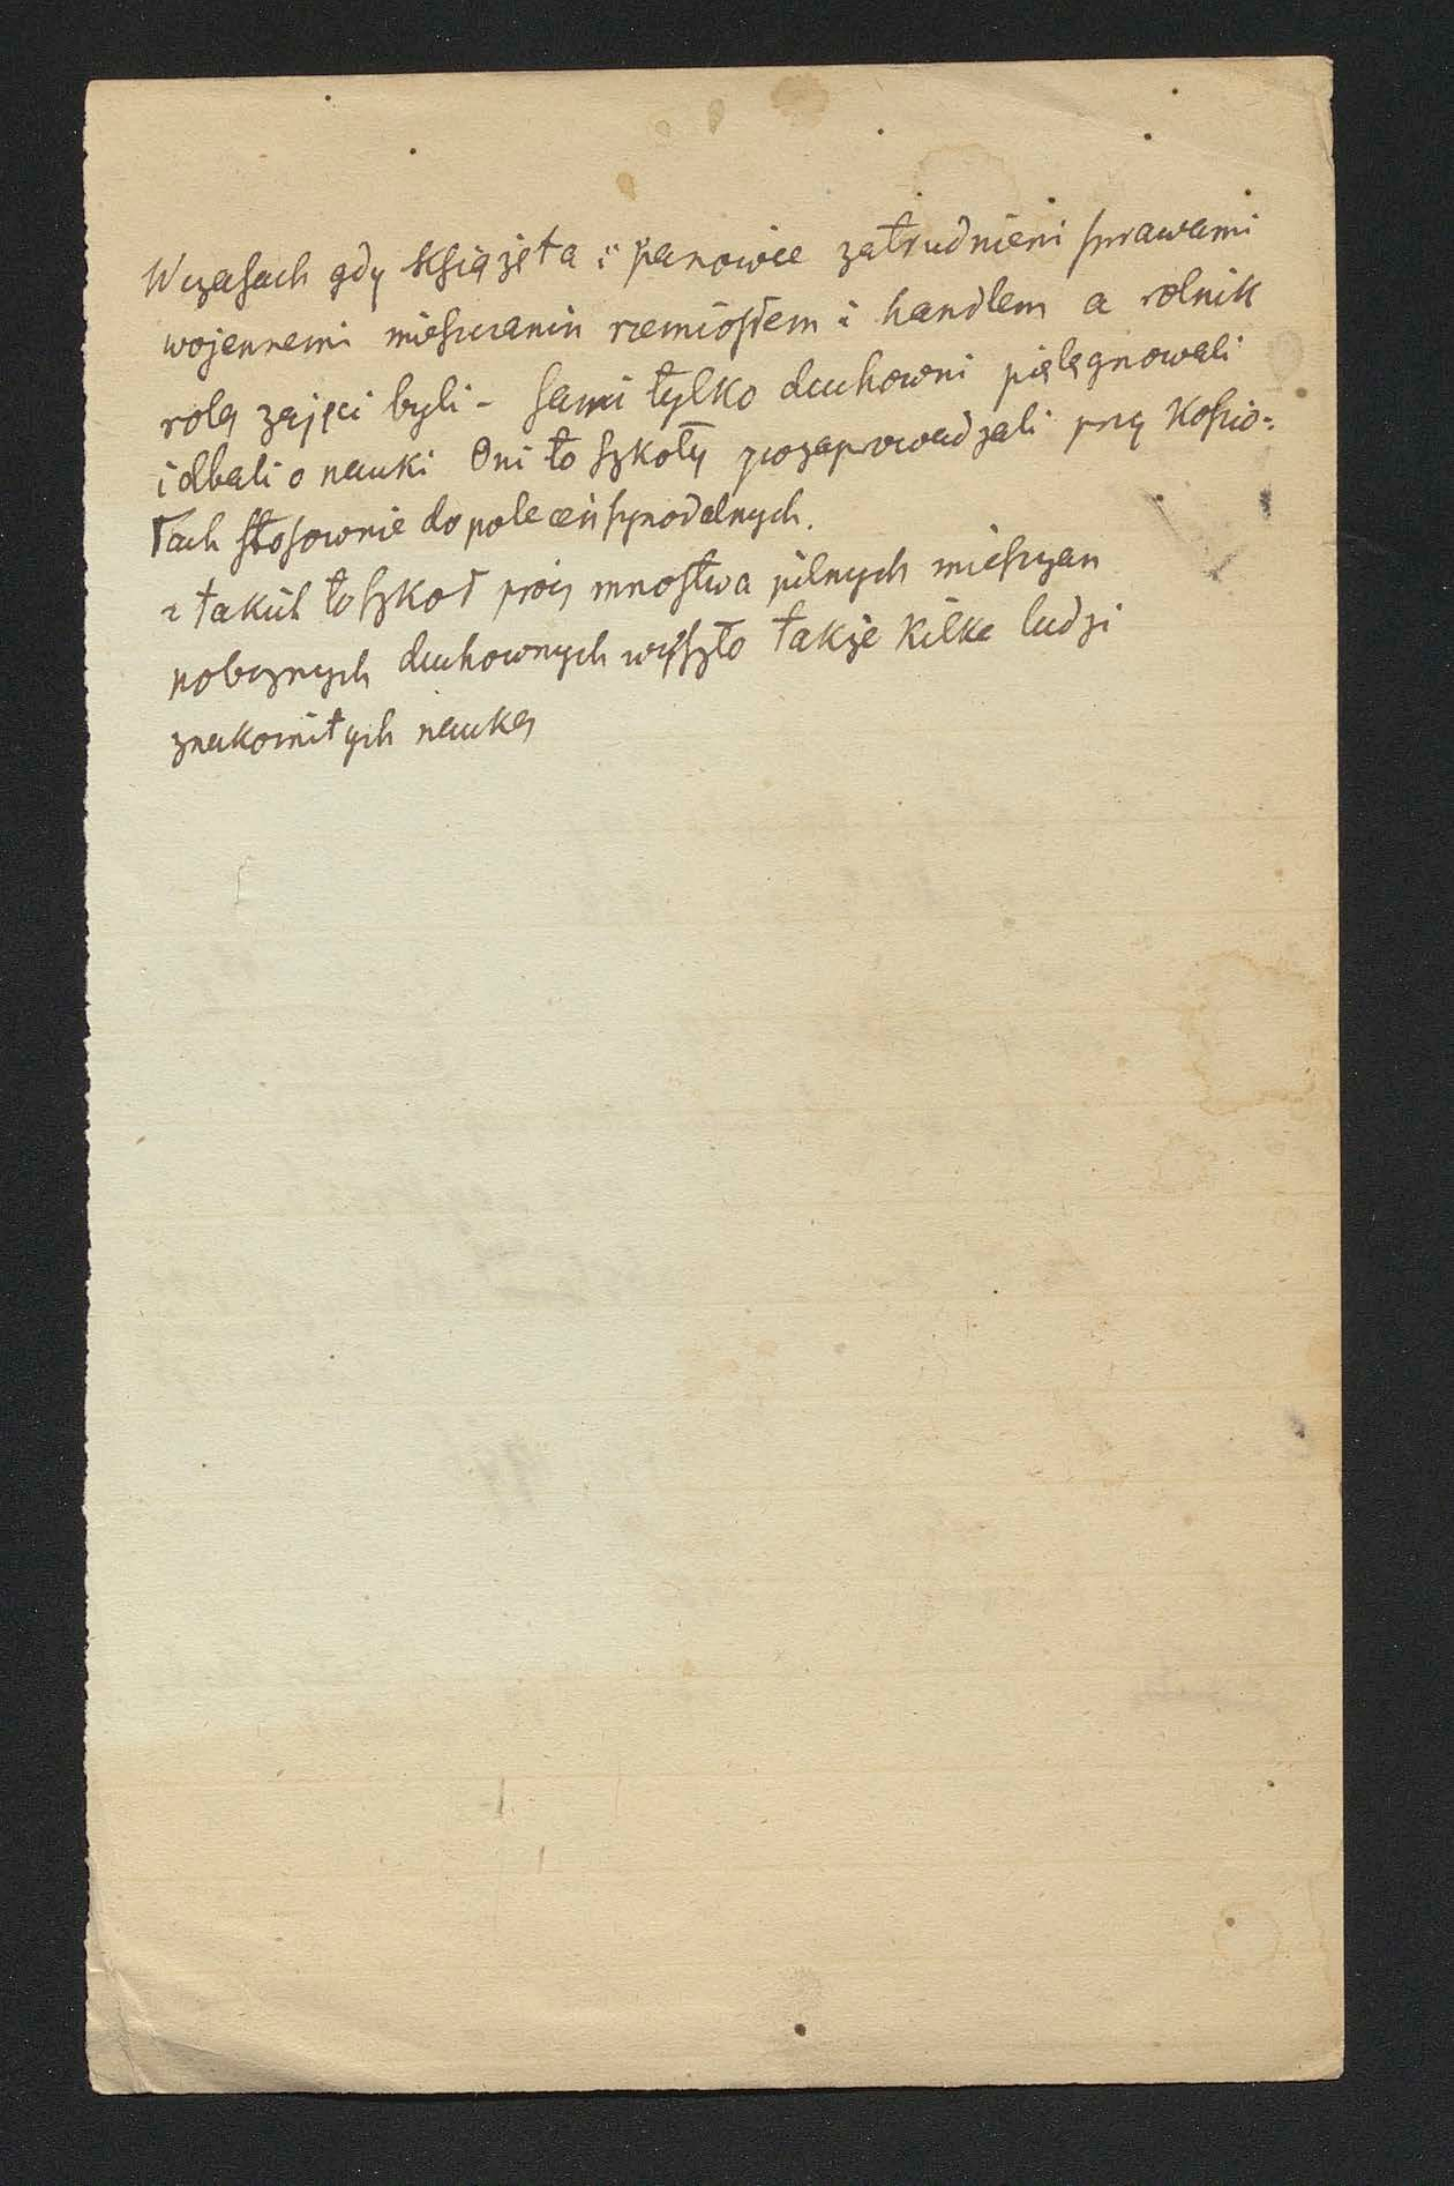 W czasach gdy Książęta i panowie zatrudnieni sprawami
wojennemi mieszczanin rzemiosłem i handlem a rolnik
rolą zajęci byli - sami tylko duchowni pielęgnowali
i dbali o nauki Oni to szkoły pozaprowadzali przy Koscio=
łach stosownie do poleceń synodalnych.
z takich to szkoł prócz mnostwa pilnych mieszczan
pobożnych duchownych wyszło także kilka ludzi
znakomitych nauką